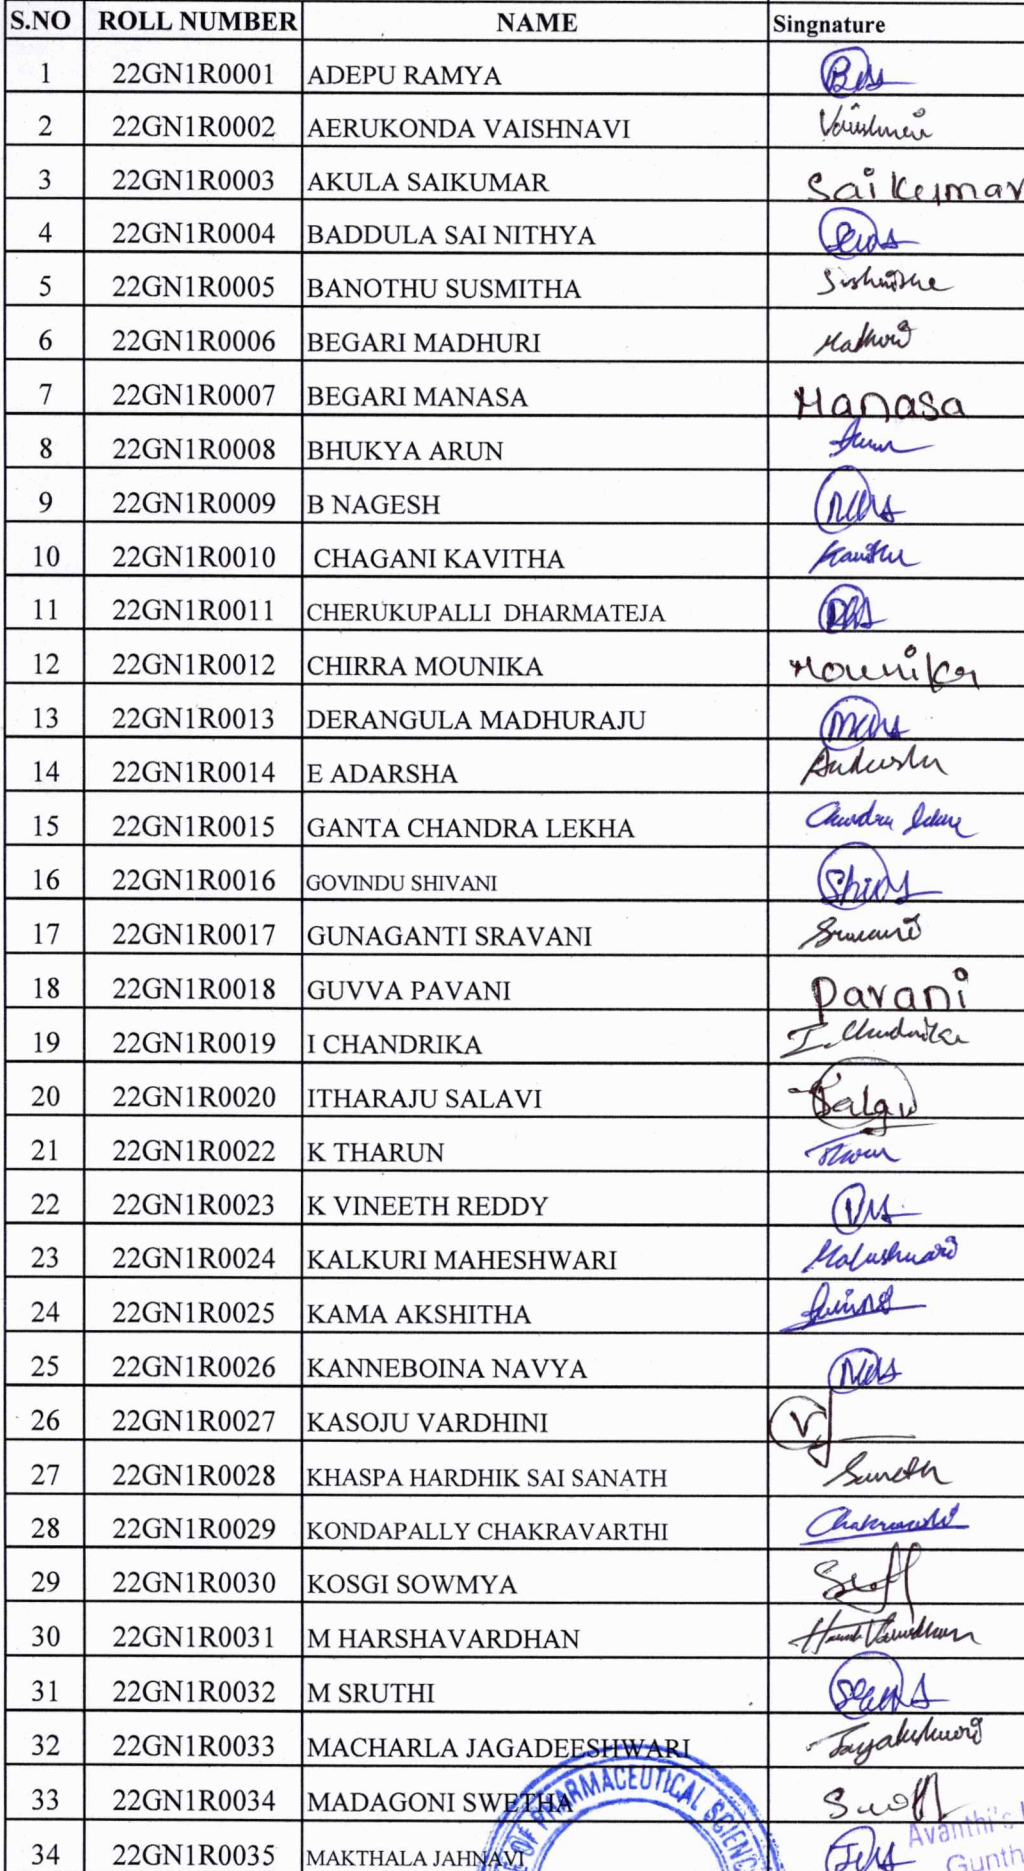 S.NO ROLL NUMBER NAME Singnature
1 22GN1R0001 ADEPU RAMYA
2 22GN1R0002 AERUKONDA VAISHNAVI Vaishnavi
3 22GN1R0003 AKULA SAIKUMAR Saikumar
4 22GN1R0004 BADDULA SAI NITHYA
5 22GN1R0005 BANOTHU SUSMITHA
6 22GN1R0006 BEGARI MADHURI Madhuri
7 22GN1R0007 BEGARI MANASA Manasa
8 22GN1R0008 BHUKYA ARUN Arun
9 22GN1R0009 B NAGESH
10 22GN1R0010 CHAGANI KAVITHA Kavitha
11 22GN1R0011 CHERUKUPALLI DHARMATEJA
12 22GN1R0012 CHIRRA MOUNIKA Mounika
13 22GN1R0013 DERANGULA MADHURAJU
14 22GN1R0014 E ADARSHA
15 22GN1R0015 GANTA CHANDRA LEKHA Chandra
16 22GN1R0016 GOVINDU SHIVANI
17 22GN1R0017 GUNAGANTI SRAVANI Sravani
18 22GN1R0018 GUVVA PAVANI Pavani
19 22GN1R0019 I CHANDRIKA I. Chandrika
20 22GN1R0020 ITHARAJU SALAVI
21 22GN1R0022 K THARUN Tharun
22 22GN1R0023 K VINEETH REDDY
23 22GN1R0024 KALKURI MAHESHWARI Maheshwari
24 22GN1R0025 KAMA AKSHITHA
25 22GN1R0026 KANNEBOINA NAVYA
26 22GN1R0027 KASOJU VARDHINI V
27 22GN1R0028 KHASPA HARDHIK SAI SANATH Sanath
28 22GN1R0029 KONDAPALLY CHAKRAVARTHI Chakravarthi
29 22GN1R0030 KOSGI SOWMYA
30 22GN1R0031 M HARSHAVARDHAN Harsh Vardhan
31 22GN1R0032 M SRUTHI
32 22GN1R0033 MACHARLA JAGADEESHWARI
33 22GN1R0034 MADAGONI SWETHA
34 22GN1R0035 MAKTHALA JAHNAVI
OF PHARMACEUTICAL
Avanthi's